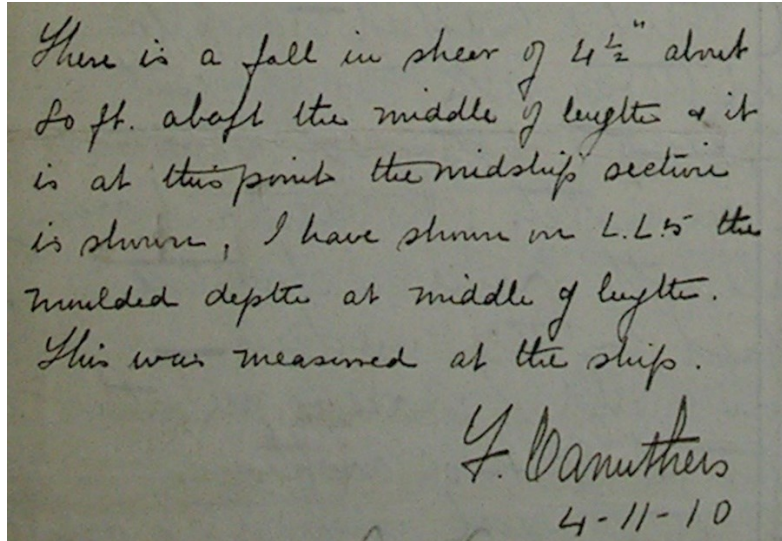 There is a fall in sheer of 4½" about
80 ft. abaft the middle of length & it
is at this point the midship section
is shown, I have shown on L.L.5 the
moulded depth at middle of length.
This was measured at the ship.
F. Carruthers
4-11-10